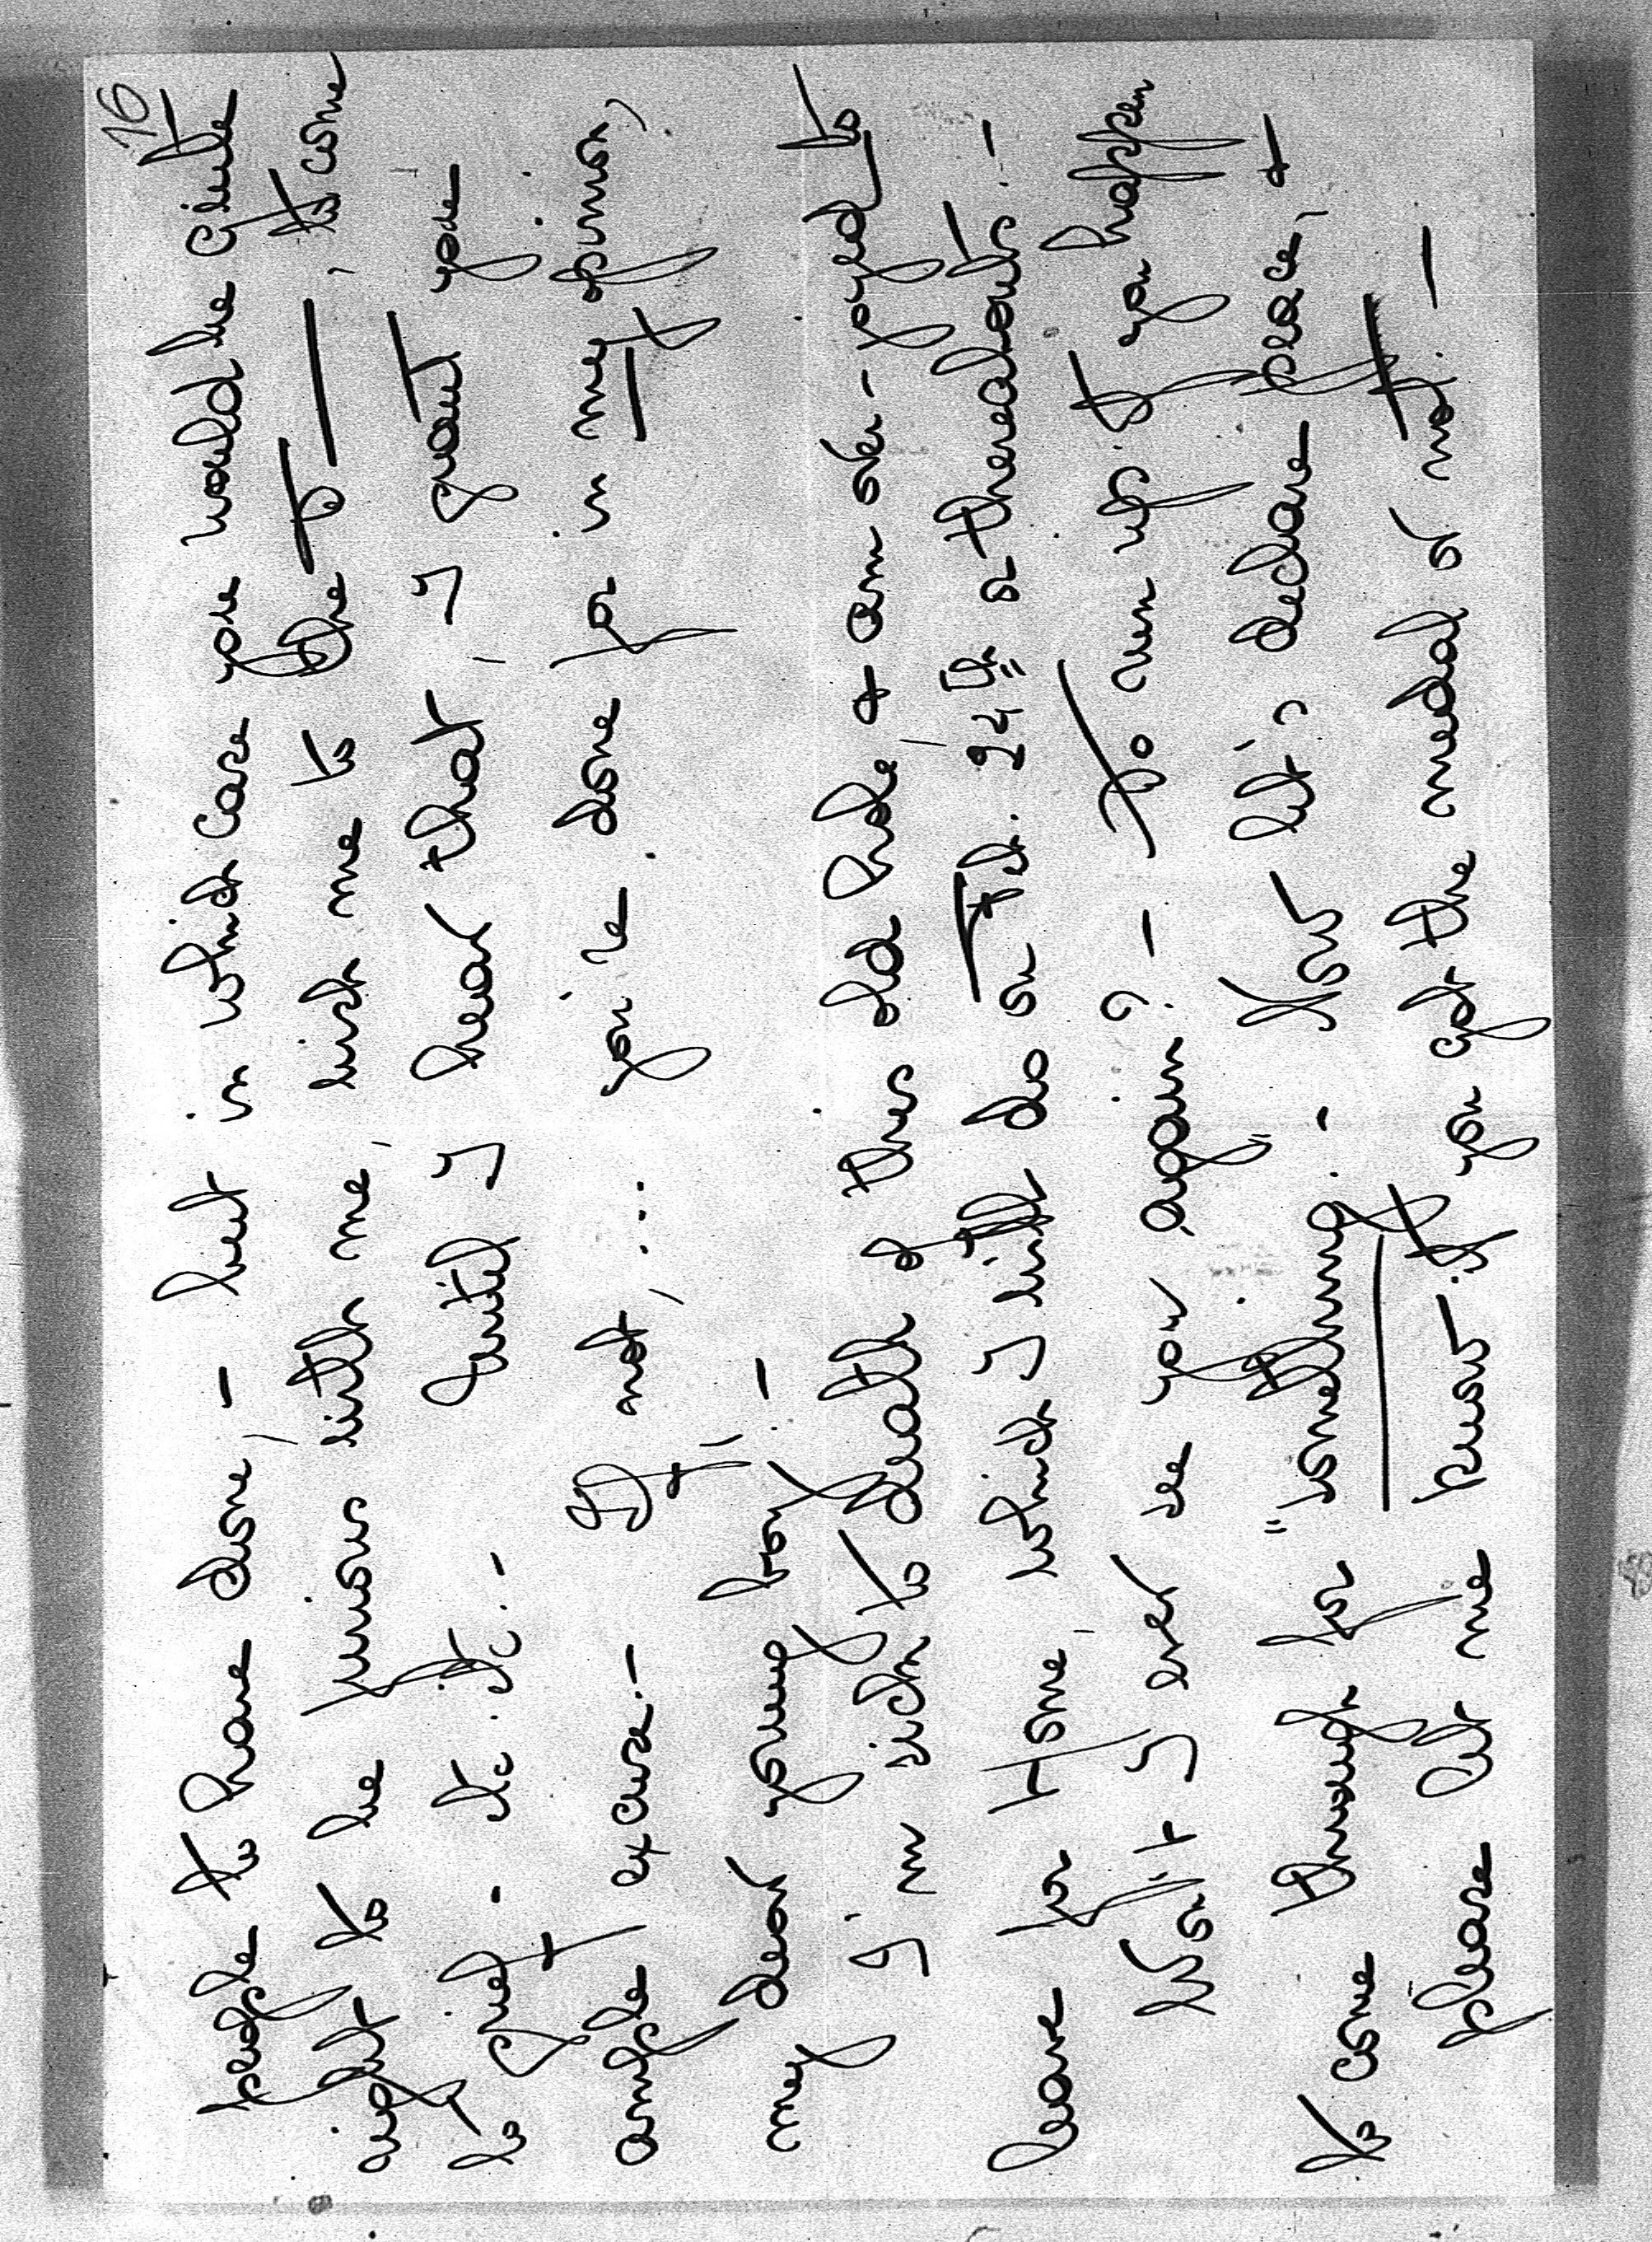 16
people to have done, — but in which case you would be quite
right to be furious with me, wish me to the D——, to come
to grief. &c. &c. — Until I hear that, I grant you
ample excuse. — If not, .... you're done for in my opinion,
my dear young boy. —
I'm sick to death of this old Hole, & am over-joyed to
leave for Home, which I will do on Feb. 24th or thereabouts. —
Won't I ever see you again? — Do run up if you happen
to come through for "something". — Now let's declare peace, &
please let me know if you got the medal or not. —